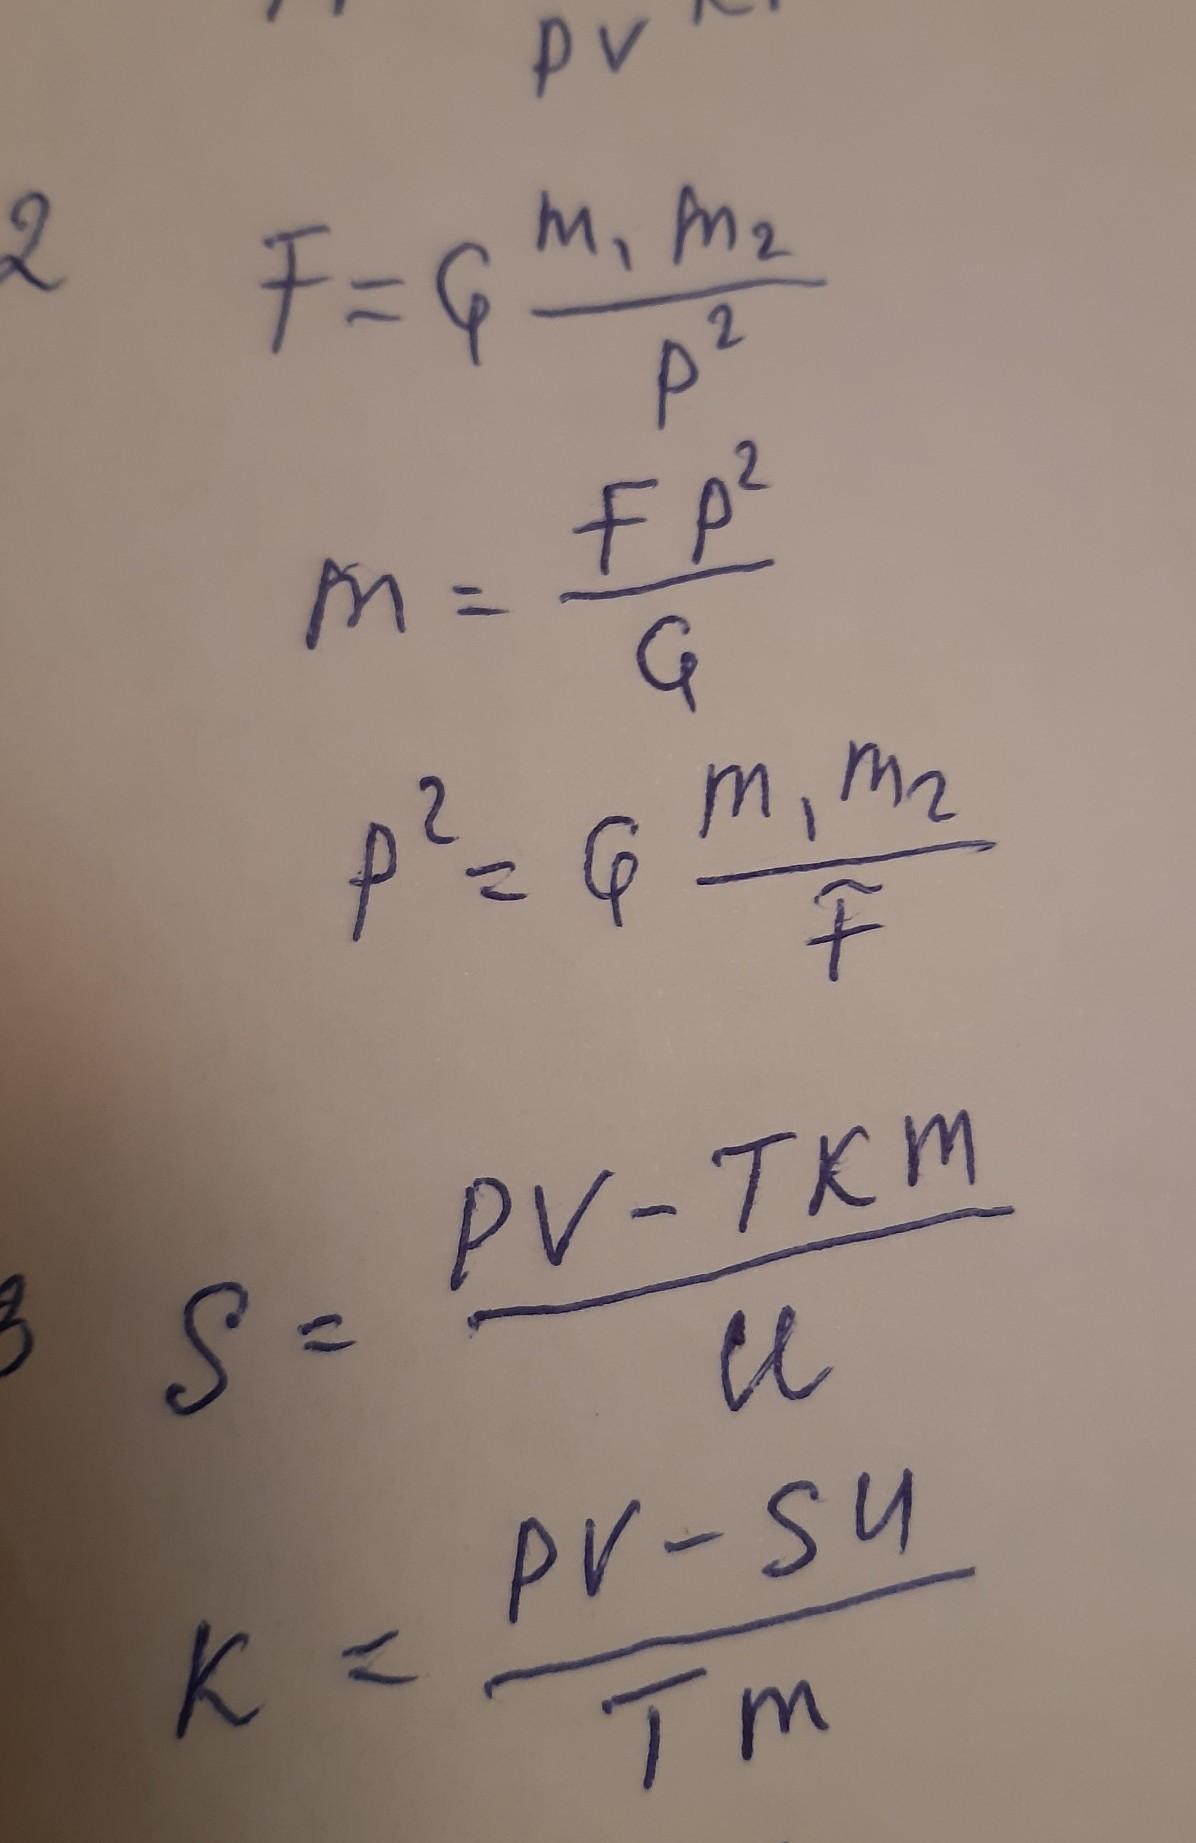 PV
2 F = G m₁ m₂ / p²
m = F p² / G
p² = G m₁ m₂ / F
3 S = PV - TKM / U
K = PV - SU / Tm